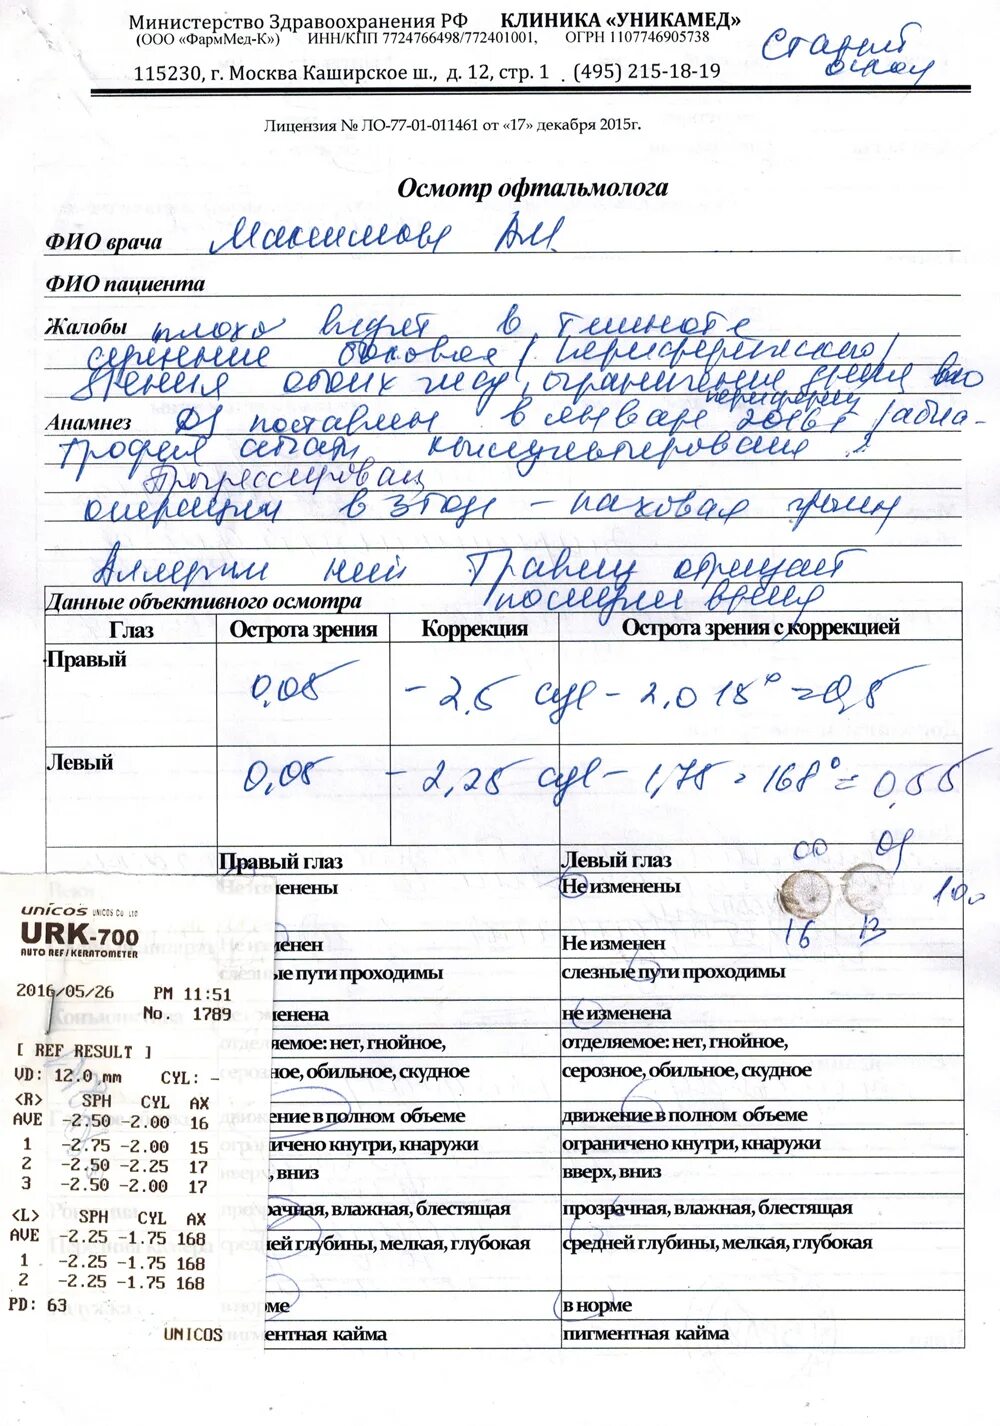 Министерство Здравоохранения РФ КЛИНИКА «УНИКАМЕД»
(ООО «ФармМед-К») ИНН/КПП 7724766498/772401001, ОГРН 1107746905738
115230, г. Москва Каширское ш., д. 12, стр. 1 . (495) 215-18-19
Лицензия № ЛО-77-01-011461 от «17» декабря 2015г.
Осмотр офтальмолога
ФИО врача
ФИО пациента
Жалобы плохо видят в темноте
зрения обоих
Анамнез DS поставлен в январе 2016г
Прогрессирован
операции в 3 года – паховая
Аллергии Травмы отрицает
Данные объективного осмотра
Глаз Острота зрения Коррекция Острота зрения с коррекцией
Правый 0,05 – 2,5 cyl – 2,0 15° = 0,5
Левый 0,05 – 2,25 cyl – 1,75 168° = 0,55
Правый глаз Левый глаз
OD OS
Не изменены
16 13
менен Не изменен
слезные пути проходимы слезные пути проходимы
менена не изменена
отделяемое: нет, гнойное, отделяемое: нет, гнойное,
серозное, обильное, скудное серозное, обильное, скудное
движение в полном объеме движение в полном объеме
ограничено кнутри, кнаружи ограничено кнутри, кнаружи
вверх, вниз вверх, вниз
прозрачная, влажная, блестящая прозрачная, влажная, блестящая
средней глубины, мелкая, глубокая средней глубины, мелкая, глубокая
в норме в норме
пигментная кайма пигментная кайма
UNICOS UNICOS CO LTD
URK-700
AUTO REF/KERATOMETER
2016/05/26 PM 11:51
No. 1789
[ REF RESULT ]
VD: 12.0 mm CYL: –
<R> SPH CYL AX
AVE -2.50 -2.00 16
1 -2.75 -2.00 15
2 -2.50 -2.25 17
3 -2.50 -2.00 17
<L> SPH CYL AX
AVE -2.25 -1.75 168
1 -2.25 -1.75 168
2 -2.25 -1.75 168
PD: 63
UNICOS